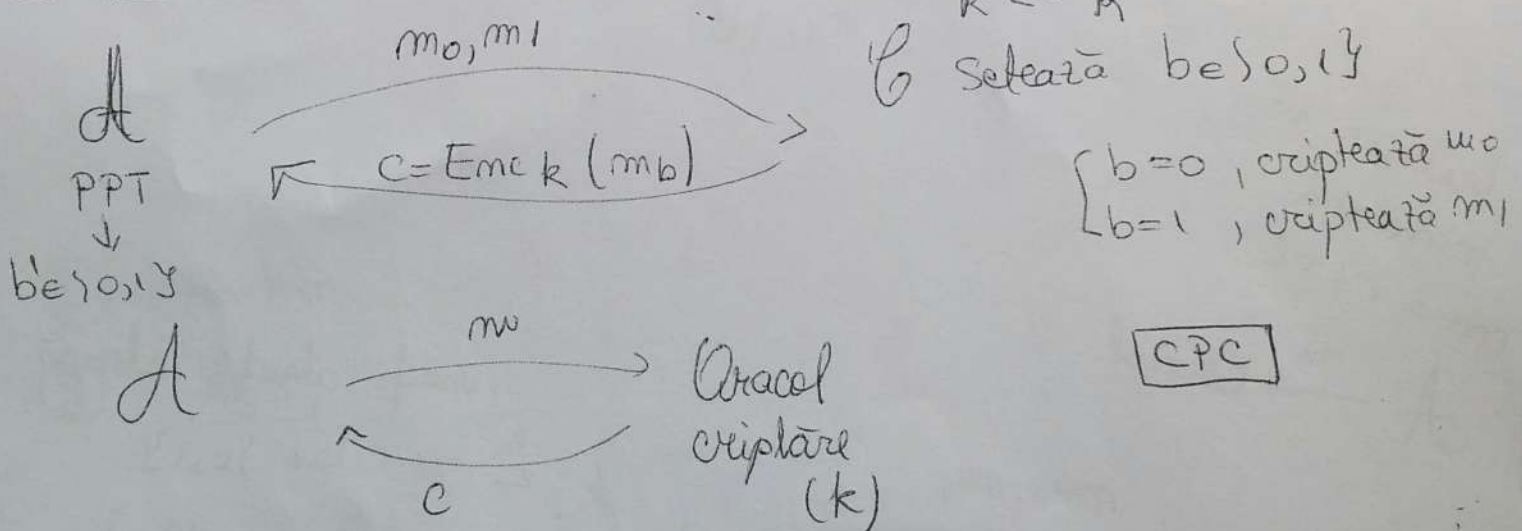 m0, m1
A
PPT
↓
b'∈{0,1}
c = Enc k (mb)
C setează b∈{0,1}
b=0, criptează m0
b=1, criptează m1
A
m
c
Oracol
criptare
(k)
CPC